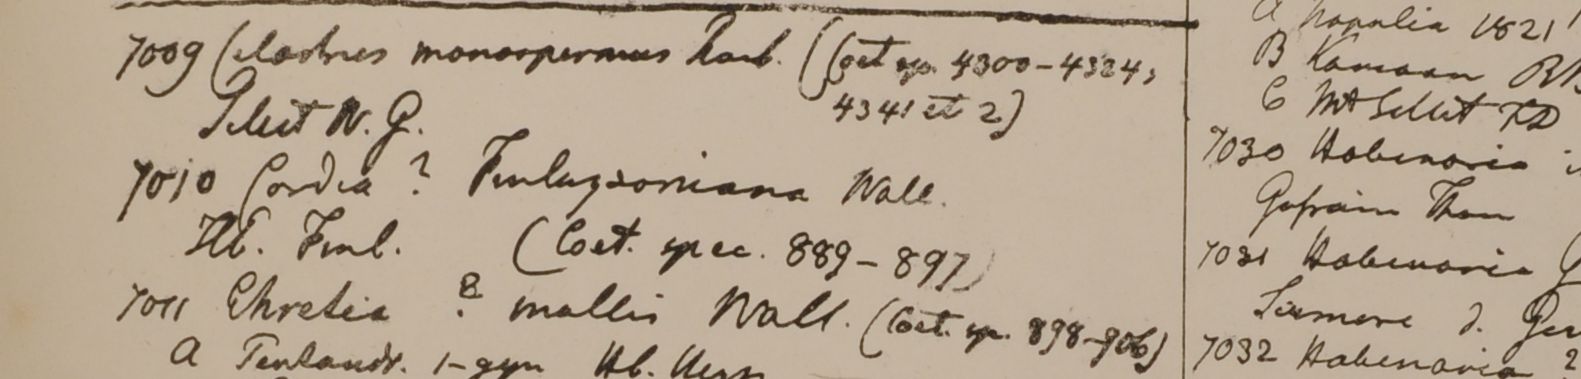 7009 Celastrus monospermus Roxb. (Cat sp. 4300-4324,
4341 et 2)
Silhet N. G.
7010 Cordia ? Finlaysoniana Wall.
Hb. Finl. (Cat. spec. 889-897)
7011 Ehretia ? mollis Wall. (Cat. sp. 898-906)
A Pentandr. 1-gyn Hb.
A Napalia 1821
B Kamaon
C Mt Sillet FD
7030 Habenaria
7031 Habenaria G
7032 Habenaria ?